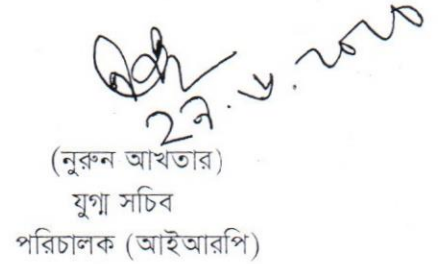 ২৯.৬.২০২০
(নুরুন আখতার)
যুগ্ম সচিব
পরিচালক (আইআরপি)